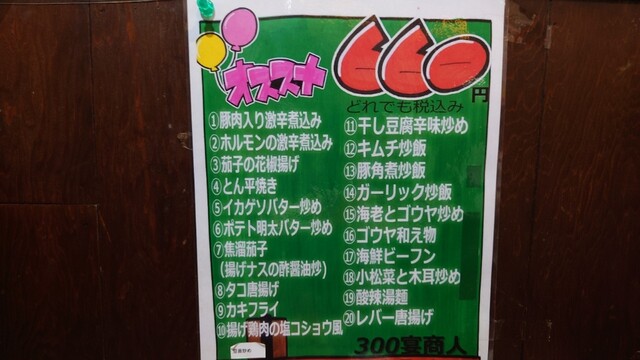 オススメ
660円
どれでも税込み
①豚肉入り激辛煮込み
②ホルモンの激辛煮込み
③茄子の花椒揚げ
④とん平焼き
⑤イカゲソバター炒め
⑥ポテト明太バター炒め
⑦焦溜茄子
(揚げナスの酢醤油炒)
⑧タコ唐揚げ
⑨カキフライ
⑩揚げ鶏肉の塩コショウ風
⑪干し豆腐辛味炒め
⑫キムチ炒飯
⑬豚角煮炒飯
⑭ガーリック炒飯
⑮海老とゴウヤ炒め
⑯ゴウヤ和え物
⑰海鮮ビーフン
⑱小松菜と木耳炒め
⑲酸辣湯麺
⑳レバー唐揚げ
300宴商人